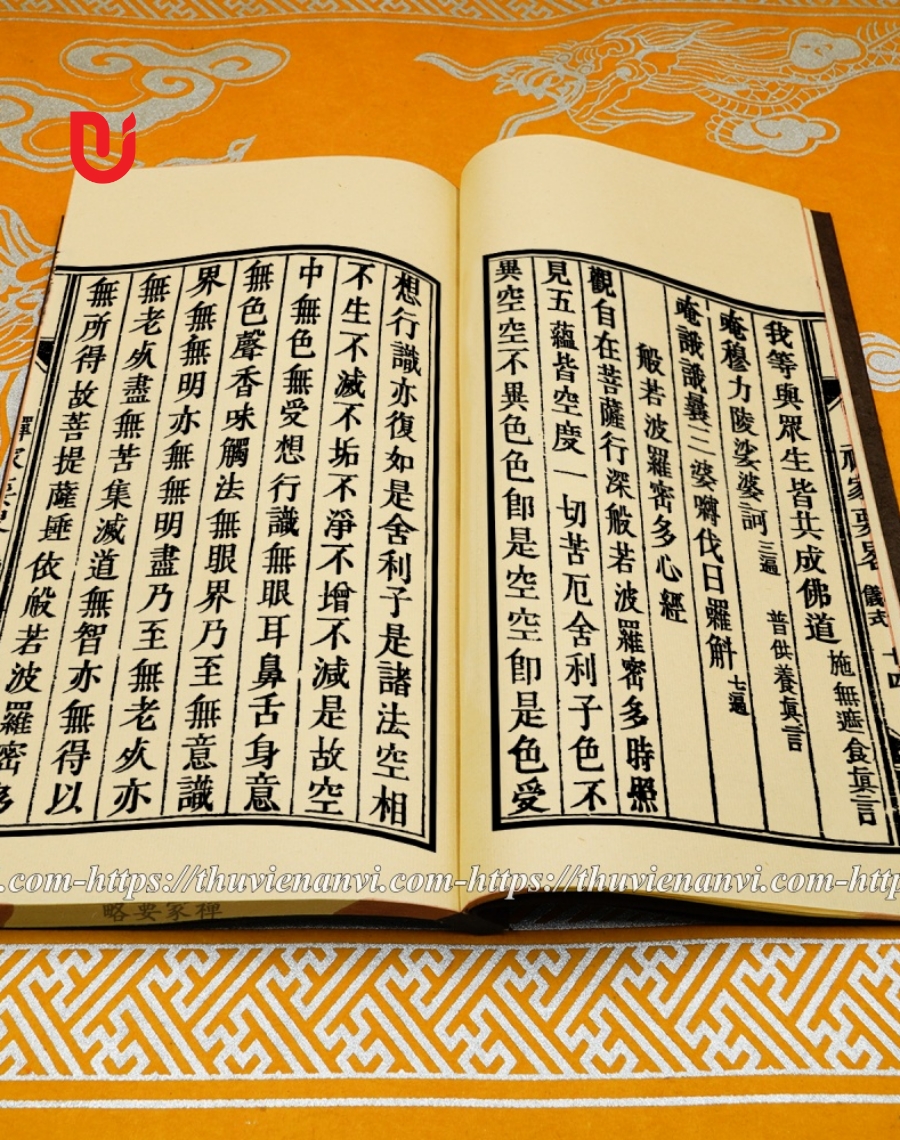 我等與眾生皆共成佛道 施無遮食真言
唵穆力陵娑婆訶 三遍 普供養真言
唵誐誐曩三婆嚩伐日羅斛 七遍
般若波羅密多心經
觀自在菩薩行深般若波羅密多時照
見五蘊皆空度一切苦厄舍利子色不
異空空不異色色卽是空空卽是色受
想行識亦復如是舍利子是諸法空相
不生不滅不垢不淨不增不減是故空
中無色無受想行識無眼耳鼻舌身意
無色聲香味觸法無眼界乃至無意識
界無無明亦無無明盡乃至無老死亦
無老死盡無苦集滅道無智亦無得以
無所得故菩提薩埵依般若波羅密多
儀式
十四
禪家要略
.com-https://thuvienanvi.com-https://thuvienanvi.com-http